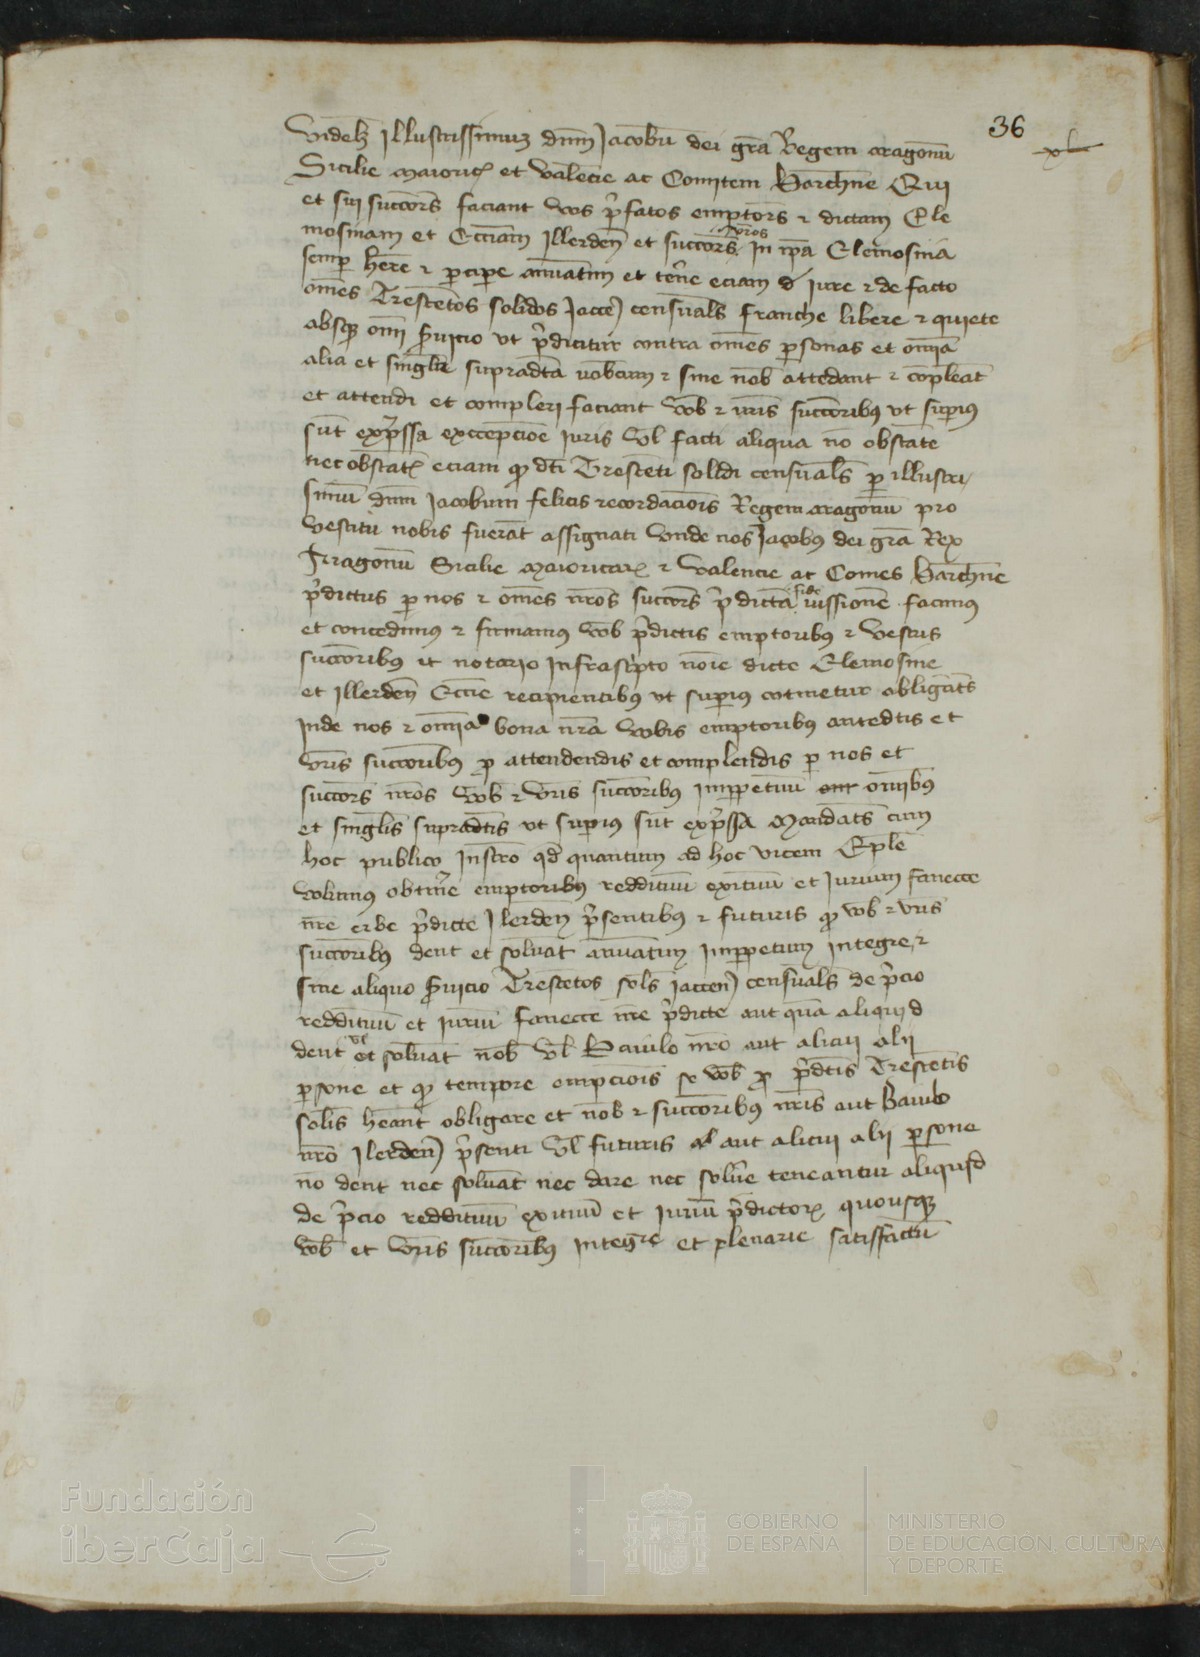 36
xl
videlz Illustrissimuz dnm Jacobu dei gra Regem aragonu
Sicilie maioric et valencie ac Comitem Barchne Qui
et sui succors faciant vos pfatos emptors et dictam Ele
mosinam et Ecciam Illerden et succors vros In ipa Elemosina
semp here et pcipe annuatim et tene eciam d iure et de facto
omes Trescetos solidos Jacce censuals franche libere et quiete
absq omi svicio vt pdicitur contra omes psonas et omia
alia et singlr supradta vobcum et sine nob attedant et compleat
et attendi et compleri faciant vob et vris succoribus vt supius
sut expssa exccepcioe iuris vl facti aliqua no obstate
nec obstat eciam q dti Tresceti solidi censuals p illustri
simu dnm Jacobum felicis recordaciois Regem aragonu pro
vestitu nobis fuerat assignati vnde nos Jacobus dei gra Rex
Arragonu Sicilie maioricar et valencie ac Comes Barchne
pdictus p nos et omes nros succors pdicta fide iussione facimus
et concedimus et firmamus vob pdictis emptoribus et vestris
succoribus it notario Infrascipto noie dicte Elemosine
et Illerden Eccie recipientibus vt supius cotinetur obligats
Inde nos et omia bona nra vobis emptoribus antedtis et
vris succoribus p attendendis et complendis p nos et
succors nros vob et vris succoribus Imppetuu omibus
et singlis supradtis vt supius sut expssa Mandats cum
hoc publico Instro qd quantum ad hoc vicem Eple
volumus obtine emptoribus reddituu exituu et Jurium fanecce
nre erbe pdicte Ilerden psentibus et futuris q vob et vris
succoribus dent et soluat annuatim Imppetum integre et
sine aliquo svicio Trescetos sols iaccen censuals de pcio
reddituu et iuriu fanecce nre pdicte ant qua aliquid
dent vl et soluat nob vl Baiulo nro aut alicui alii
psone et q tempore empciois se vob p pdtis Trescetis
solis heant obligare et nob et succoribus nris aut Baiulo
nro Ilerden psenti vl futuris aut alicui alii psone
no dent nec soluat nec dare nec solue teneantur aliquid
de pcio reddituu exituu et iuriu pdictor quousq
vob et vris succoribus integre et plenarie satisfactu
Fundación
iberCaja
GOBIERNO
DE ESPAÑA
MINISTERIO
DE EDUCACIÓN, CULTURA
Y DEPORTE